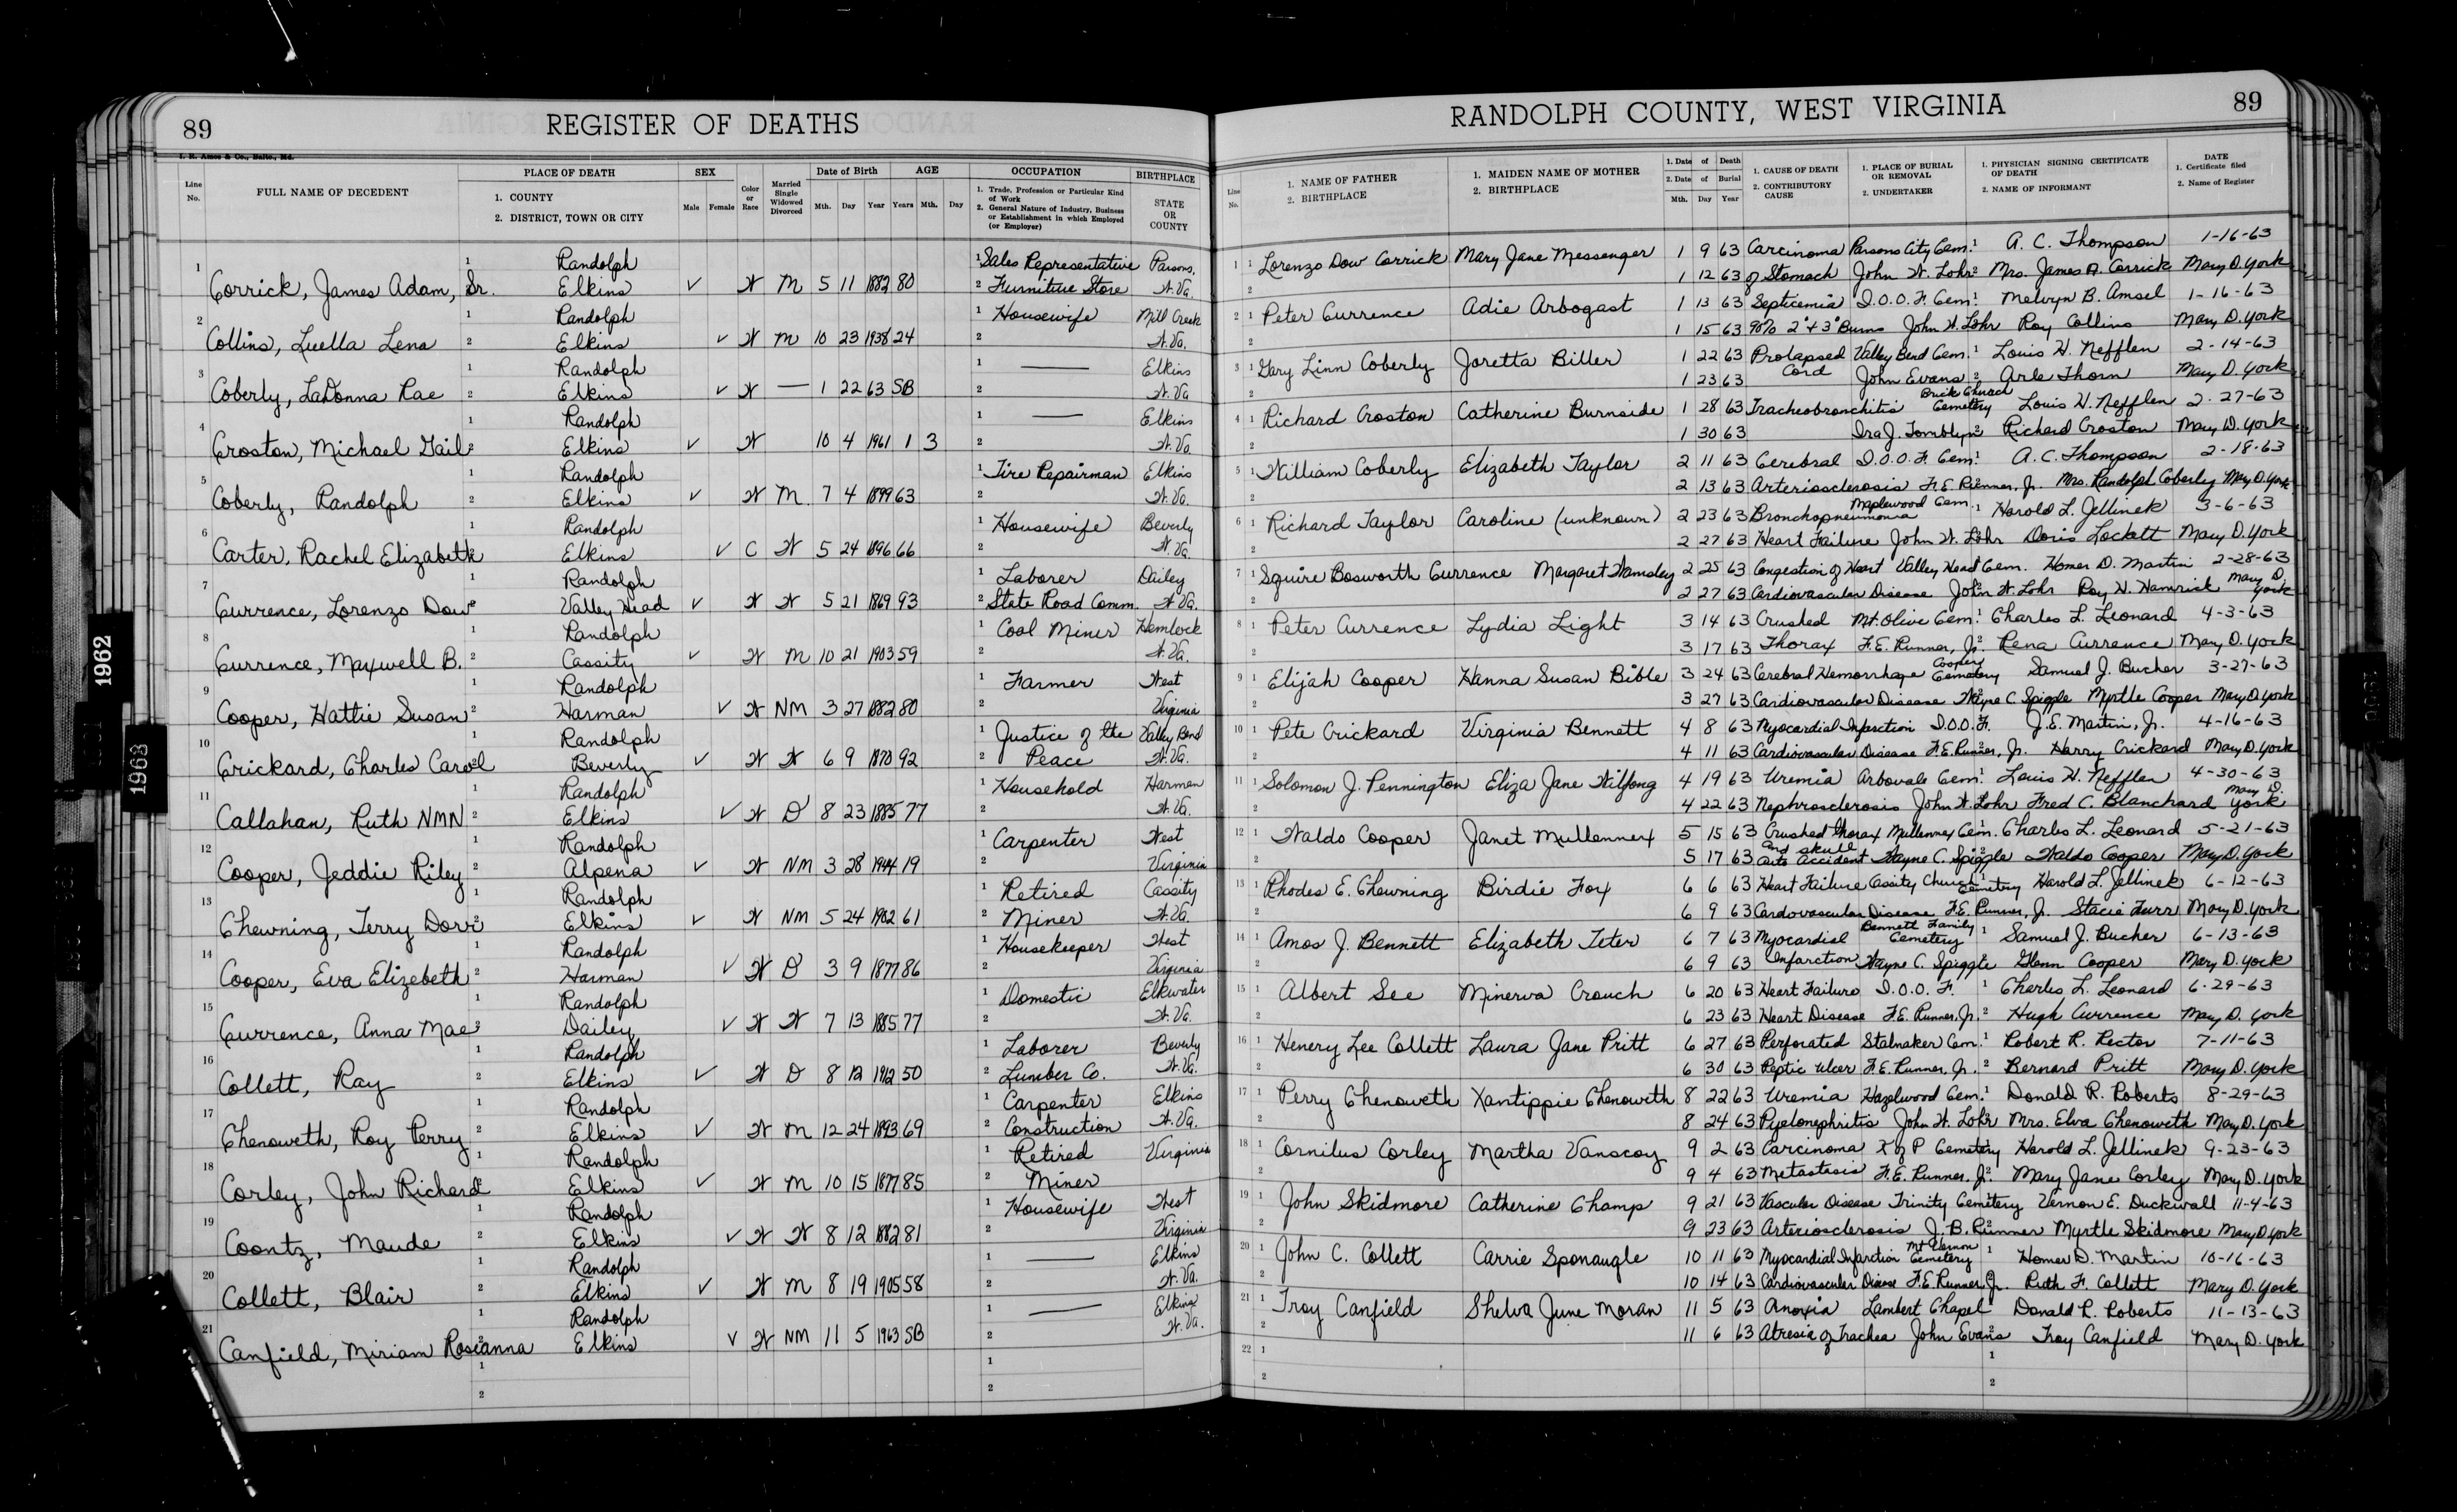 89
REGISTER OF DEATHS
I. R. Amos & Co., Balto., Md.
Line No.
FULL NAME OF DECEDENT
PLACE OF DEATH
1. COUNTY
2. DISTRICT, TOWN OR CITY
SEX
Male Female
Color or Race
Married Single Widowed Divorced
Date of Birth
Mth. Day Year
AGE
Years Mth. Day
OCCUPATION
1. Trade, Profession or Particular Kind of Work
2. General Nature of Industry, Business or Establishment in which Employed (or Employer)
BIRTHPLACE
STATE OR COUNTY
1 1 Randolph 1 Sales Representative Parsons,
Corrick, James Adam, Sr. Elkins ✓ W M 5 11 1882 80 2 Furniture Store W.Va.
2 1 Randolph 1 Housewife Mill Creek
Collins, Luella Lena 2 Elkins ✓ W M 10 23 1938 24 2 W.Va.
3 1 Randolph 1 — Elkins
Coberly, LaDonna Rae 2 Elkins ✓ W — 1 22 63 SB 2 W.Va
4 1 Randolph 1 — Elkins
Croston, Michael Gail 2 Elkins ✓ W 10 4 1961 1 3 2 W.Va.
5 1 Randolph 1 Tire Repairman Elkins
Coberly, Randolph 2 Elkins ✓ W M. 7 4 1899 63 2 W.Va.
6 1 Randolph 1 Housewife Beverly
Carter, Rachel Elizabeth Elkins ✓ C W 5 24 1896 66 2 W.Va.
7 1 Randolph 1 Laborer Dailey
Currence, Lorenzo Dow 2 Valley Head ✓ W W 5 21 1869 93 2 State Road Comm. W.Va.
8 1 Randolph 1 Coal Miner Hemlock
Currence, Maxwell B. 2 Cassity ✓ W M 10 21 1903 59 2 W.Va.
9 1 Randolph 1 Farmer West
Cooper, Hattie Susan 2 Harman ✓ W NM 3 27 1882 80 2 Virginia
10 1 Randolph 1 Justice of the Valley Bend
Crickard, Charles Carol 2 Beverly ✓ W W 6 9 1870 92 2 Peace W.Va.
11 1 Randolph 1 Household Harman
Callahan, Ruth NMN 2 Elkins ✓ W D 8 23 1885 77 2 W.Va.
12 1 Randolph 1 Carpenter West
Cooper, Jeddie Riley 2 Alpena ✓ W NM 3 28 1944 19 2 Virginia
13 1 Randolph 1 Retired Cassity
Chewning, Terry Dorr 2 Elkins ✓ W NM 5 24 1902 61 2 Miner W.Va.
14 1 Randolph 1 Housekeeper West
Cooper, Eva Elizebeth 2 Harman ✓ W D 3 9 1877 86 2 Virginia
15 1 Randolph 1 Domestic Elkwater
Currence, Anna Mae 2 Dailey ✓ W W 7 13 1885 77 2 W.Va.
16 1 Randolph 1 Laborer Beverly
Collett, Ray 2 Elkins ✓ W D 8 12 1912 50 2 Lumber Co. W.Va.
17 1 Randolph 1 Carpenter Elkins
Chenoweth, Roy Perry 2 Elkins ✓ W M 12 24 1893 69 2 Construction W.Va.
18 1 Randolph 1 Retired Virginia
Corley, John Richard 2 Elkins ✓ W M 10 15 1877 85 2 Miner
19 1 Randolph 1 Housewife West
Coontz, Maude 2 Elkins ✓ W W 8 12 1882 81 2 Virginia
20 1 Randolph 1 — Elkins
Collett, Blair 2 Elkins ✓ W M 8 19 1905 58 2 W.Va.
21 1 Randolph 1 — Elkins
Canfield, Miriam Roseanna 2 Elkins ✓ W NM 11 5 1963 SB 2 W.Va.
1 1
2 2
1962
1963
RANDOLPH COUNTY, WEST VIRGINIA
89
Line No.
1. NAME OF FATHER
2. BIRTHPLACE
1. MAIDEN NAME OF MOTHER
2. BIRTHPLACE
1. Date of Death
2. Date of Burial
Mth. Day Year
1. CAUSE OF DEATH
2. CONTRIBUTORY CAUSE
1. PLACE OF BURIAL OR REMOVAL
2. UNDERTAKER
1. PHYSICIAN SIGNING CERTIFICATE OF DEATH
2. NAME OF INFORMANT
DATE
1. Certificate filed
2. Name of Register
1 1 Lorenzo Dow Corrick Mary Jane Messenger 1 9 63 Carcinoma Parsons City Cem. 1 A. C. Thompson 1-16-63
2 1 12 63 of Stomach John W. Lohr 2 Mrs. James A. Corrick Mary D. York
2 1 Peter Currence Adie Arbogast 1 13 63 Septicemia I.O.O.F. Cem. 1 Melvyn B. Amsel 1-16-63
2 1 15 63 90% 2° + 3° Burns John W. Lohr Roy Collins Mary D. York
3 1 Gary Linn Coberly Joretta Biller 1 22 63 Prolapsed Valley Bend Cem. 1 Louis W. Nefflen 2-14-63
2 1 23 63 Cord John Evans 2 Arle Thorn Mary D. York
4 1 Richard Croston Catherine Burnside 1 28 63 Tracheobronchitis Brick Church Cemetery Louis W. Nefflen 2-27-63
2 1 30 63 Ira J. Tomblyn 2 Richard Croston Mary D. York
5 1 William Coberly Elizabeth Taylor 2 11 63 Cerebral I.O.O.F. Cem. 1 A. C. Thompson 2-18-63
2 2 13 63 Arteriosclerosis F.E. Runner, Jr. Mrs. Randolph Coberly Mary D. York
6 1 Richard Taylor Caroline (unknown) 2 23 63 Bronchopneumonia Maplewood Cem. 1 Harold L. Jellinek 3-6-63
2 2 27 63 Heart Failure John W. Lohr Doris Lockett Mary D. York
7 1 Squire Bosworth Currence Margaret Wamsley 2 25 63 Congestion of Heart Valley Head Cem. Homer D. Martin 2-28-63
2 2 27 63 Cardiovascular Disease John W. Lohr Roy H. Hamrick Mary D. York
8 1 Peter Currence Lydia Light 3 14 63 Crushed Mt. Olive Cem. 1 Charles L. Leonard 4-3-63
2 3 17 63 Thorax F.E. Runner, Jr. 2 Rena Currence Mary D. York
9 1 Elijah Cooper Hanna Susan Bible 3 24 63 Cerebral Hemorrhage Cooper Cemetery Samuel J. Bucher 3-27-63
2 3 27 63 Caridiovascular Disease Wayne C. Spiggle Myrtle Cooper Mary D. York
10 1 Pete Crickard Virginia Bennett 4 8 63 Myocardial Infarction I.O.O.F. J. E. Martin, Jr. 4-16-63
2 4 11 63 Cardiovascular Disease F.E. Runner, Jr. Harry Crickard Mary D. York
11 1 Solomon J. Pennington Eliza Jane Wilfong 4 19 63 Uremia Arbovale Cem. 1 Louis W. Nefflen 4-30-63
2 4 22 63 Nephrosclerosis John W. Lohr Fred C. Blanchard Mary D. York
12 1 Waldo Cooper Janet Mullennex 5 15 63 Crushed thorax Mullennex Cem. Charles L. Leonard 5-21-63
2 5 17 63 and skull Auto accident Wayne C. Spiggle Waldo Cooper Mary D. York
13 1 Rhodes E. Chewning Birdie Fox 6 6 63 Heart Failure Cassity Church Cemetery Harold L. Jellinek 6-12-63
2 6 9 63 Cardovascular Disease F.E. Runner, Jr. Stacie Furr Mary D. York
14 1 Amos J. Bennett Elizabeth Teter 6 7 63 Myocardial Bennett Family Cemetery 1 Samuel J. Bucher 6-13-63
2 6 9 63 Infarction Wayne C. Spiggle Glenn Cooper Mary D. York
15 1 Albert See Minerva Crouch 6 20 63 Heart Failure I.O.O.F. 1 Charles L. Leonard 6-29-63
2 6 23 63 Heart Disease F.E. Runner, Jr. 2 Hugh Currence Mary D. York
16 1 Henery Lee Collett Laura Jane Pritt 6 27 63 Perforated Stalnaker Cem. 1 Robert R. Rector 7-11-63
2 6 30 63 Peptic Ulcer F.E. Runner, Jr. 2 Bernard Pritt Mary D. York
17 1 Perry Chenoweth Xantippie Chenoweth 8 22 63 Uremia Hazelwood Cem. 1 Donald R. Roberts 8-29-63
2 8 24 63 Pyelonephritis John W. Lohr Mrs. Elva Chenoweth Mary D. York
18 1 Cornilus Corley Martha Vanscoy 9 2 63 Carcinoma K of P Cemetery Harold L. Jellinek 9-23-63
2 9 4 63 Metastasis F.E. Runner, Jr. 2 Mary Jane Corley Mary D. York
19 1 John Skidmore Catherine Champ 9 21 63 Vascular Disease Trinity Cemetery Vernon E. Duckwall 11-4-63
2 9 23 63 Arteriosclerosis J. B. Runner Myrtle Skidmore Mary D York
20 1 John C. Collett Carrie Sponaugle 10 11 63 Myocardial Infarction Mt Vernon Cemetery 1 Homer D. Martin 10-16-63
2 10 14 63 Cardiovascular Disease F.E. Runner, Jr. Ruth F. Collett Mary D. York
21 1 Troy Canfield Shelva June Moran 11 5 63 Anoxia Lambert Chapel Donald R. Roberts 11-13-63
2 11 6 63 Atresia of Trachea John Evans 2 Troy Canfield Mary D. York
22 1 1
2 2